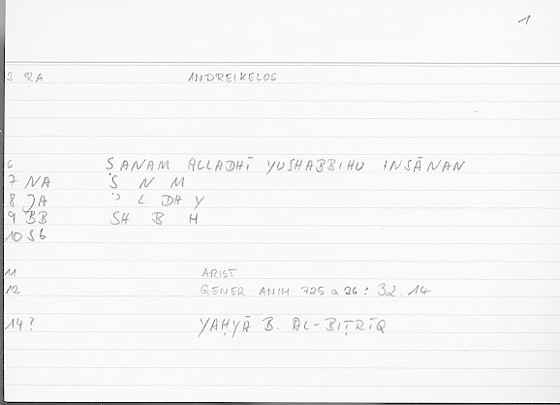 1
2 RA ANDREIKELOS
6 ṢANAM ALLADHĪ YUSHABBIHU INSĀNAN
7 NA Ṣ N M
8 JA ʾ L DH Y
9 BB SH B H
10 S6
11 ARIST
12 GENER ANIM 725 a 26 : 32.14
14? YAḤYĀ B. AL-BIṬRĪQ